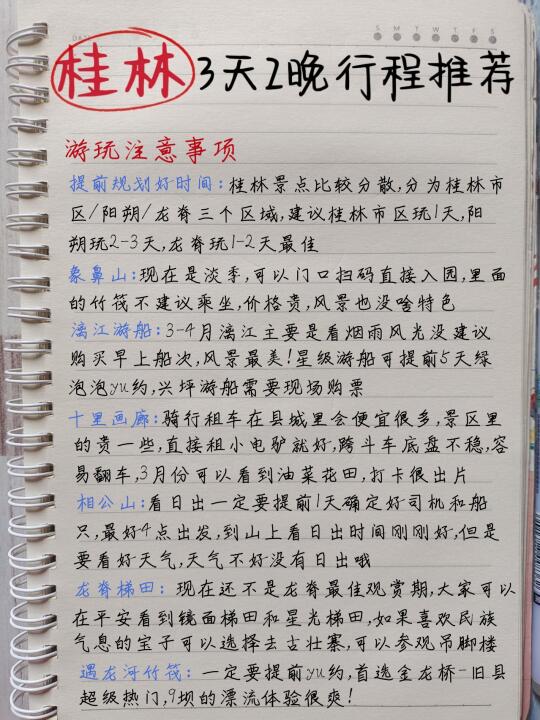 S M T W T F S
桂林3天2晚行程推荐
游玩注意事项
提前规划好时间:桂林景点比较分散,分为桂林市
区/阳朔/龙脊三个区域,建议桂林市区玩1天,阳
朔玩2-3天,龙脊玩1-2天最佳
象鼻山:现在是淡季,可以门口扫码直接入园,里面
的竹筏不建议乘坐,价格贵,风景也没啥特色
漓江游船:3-4月漓江主要是看烟雨风光没建议
购买早上船次,风景最美!星级游船可提前5天绿
泡泡yu约,兴坪游船需要现场购票
十里画廊:骑行租车在县城里会便宜很多,景区里
的贵一些,直接租小电驴就好,跨斗车底盘不稳,容
易翻车,3月份可以看到油菜花田,打卡很出片
相公山:看日出一定要提前1天确定好司机和船
只,最好4点出发,到山上看日出时间刚刚好,但是
要看好天气,天气不好没有日出哦
龙脊梯田:现在还不是龙脊最佳观赏期,大家可以
在平安看到镜面梯田和星光梯田,如果喜欢民族
气息的宝子可以选择去古壮寨,可以参观吊脚楼
遇龙河竹筏:一定要提前yu约,首选金龙桥-旧县
超级热门,9坝的漂流体验很爽!